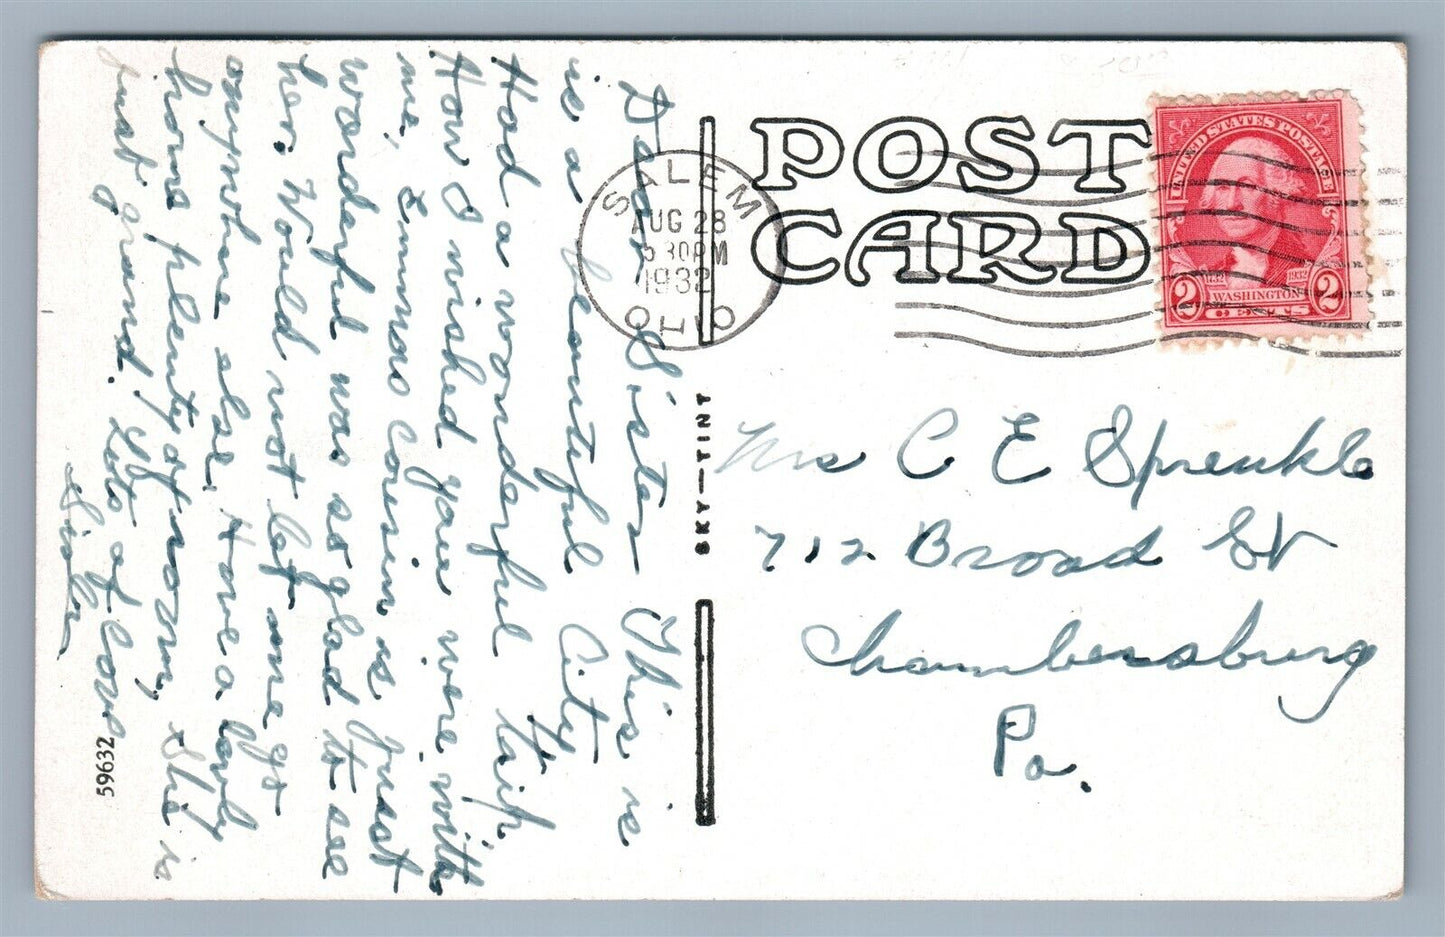 POST
CARD
SALEM
AUG 28
5 30 PM
1932
OHIO
UNITED STATES POSTAGE
1932
WASHINGTON
2 CENTS 2
SKY-TINT
59632
Mrs C E Sprenkle
712 Broad St
Chambersburg
Pa.
Dear Sister This is
is a beautiful City
Had a wonderful trip.
How I wished you were with
me, Emmas Cousin is just
wonderful was so glad to see
her. Would not let me go
anywhere else. Have a lovely
home plenty of room, She is
just grand. Lots of love
Sister